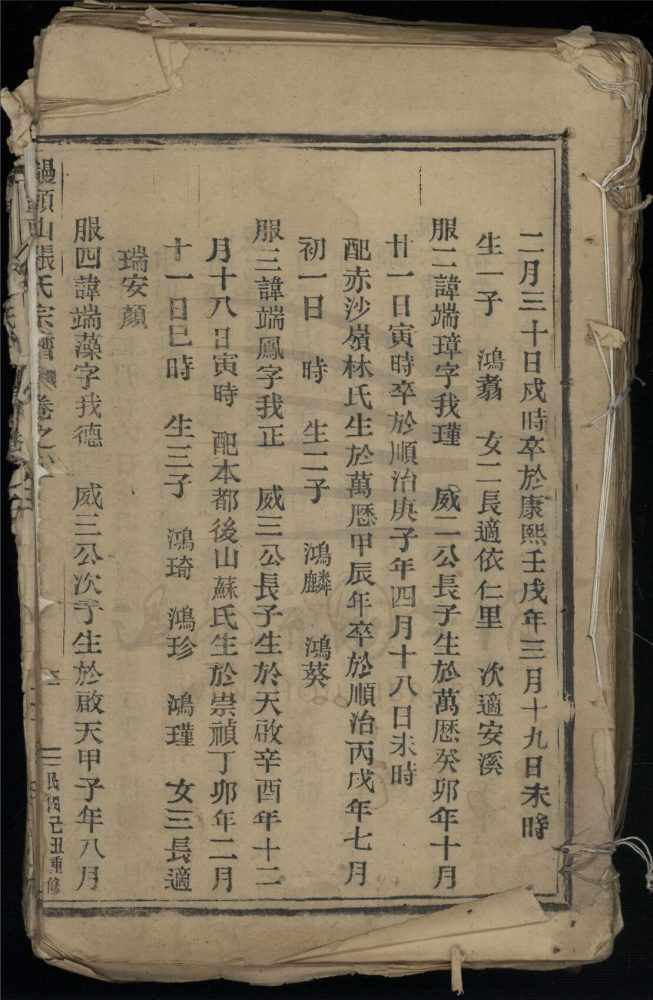 二月三十日戌時卒於康熙壬戌年三月十九日未時
生一子 鴻翥 女二長適依仁里 次適安溪
服二諱端璋字我瑾 威二公長子生於萬歷癸卯年十月
廿一日寅時卒於順治庚子年四月十八日未時
配赤沙嶺林氏生於萬歷甲辰年卒於順治丙戌年七月
初一日 時 生二子 鴻麟 鴻葵
服三諱端鳳字我正 威三公長子生於天啟辛酉年十二
月十八日寅時 配本都後山蘇氏生於崇禎丁卯年二月
十一日巳時 生三子 鴻琦 鴻珍 鴻瑾 女三長適
瑞安顏
服四諱端藻字我德 威三公次子生於啟天甲子年八月
饅頭山張氏宗譜 卷之
民國己丑重修